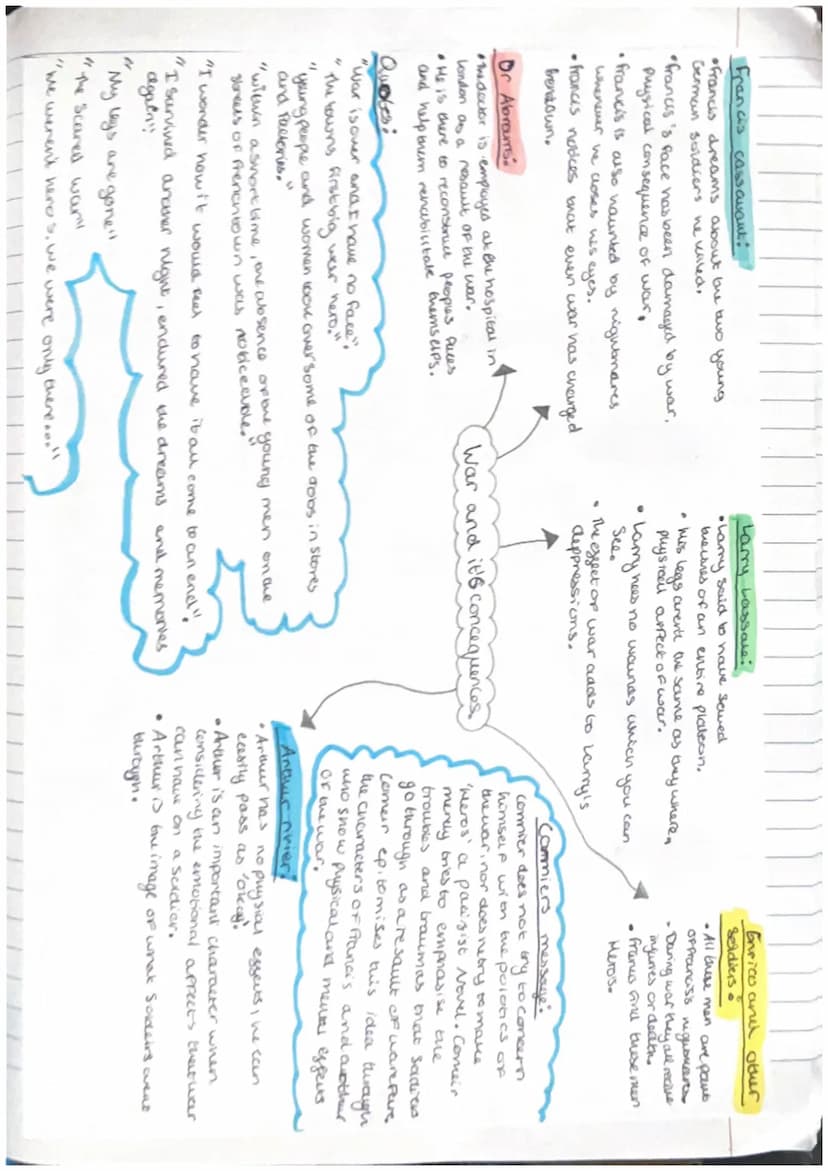 Francis cassavant:
• Francis dreams about the two young
German soldiers he killed.
• Francis's face has been damaged by war.
Physical consequence of war.
• Francis is also haunted by nightmares
whenever he closes his eyes.
• Francis notices that even war has changed
frenchtown.
Dr Abrams:
• the doctor is employed at the hospital in
London as a result of the war.
• He is there to reconstruct peoples faces
and help them rehabilitate themselfs.
War and it's concequences
Larry Lassale:
• Larry said to have saved
the lives of an entire platoon.
• his legs arent the same as they where,
physical affect of war.
• Larry has no wounds which you can
see.
• The effect of war adds to Larry's
deppressions.
Enrico and other
soldiers:
• All these men are patts
of Francis's nightmares.
• During war they all recive
injures or death.
• Francis find these men
Heros.
Quotes:
"War is over and I have no face".
"The towns first big war hero."
"young people and women took over some of the jobs in stores
and factories."
"within a short time, the absence of the young men on the
streets of frenchtown was noticeable."
"I wonder how it would feel to have it all come to an end".
"I survived another night, endured the dreams and memories
again"
" My legs are gone"
"The scared war"
"We werent hero's, we were only there..."
Cormiers message:
Cormier does not try to concern
himself with the polotics of
the war, nor does he try to make
'heros' a pacifist novel. Comeir
merely tries to emphasise the
troubles and traumas that soldiers
go through as a result of warfare.
Comeir epitomises this idea through
the characters of Francis and another
who show physical and mental effects
of the war.
Arthur rivier:
• Arthur has no physical effects, he can
easily pass as 'okay'.
• Arthur is an important character when
considering the emotional affects that war
can have on a soldier.
• Arthur is the image of what soldiers went
through.